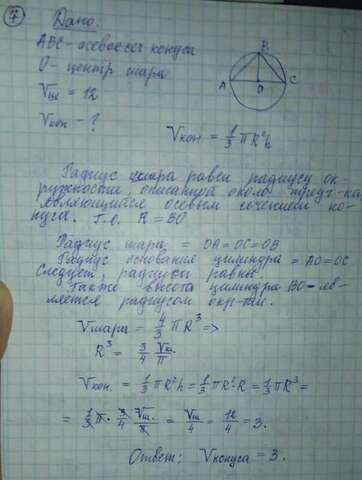 7 Дано:
ABC - осевое сеч конуса
O - центр шара
Vш = 12
Vкон - ?
B
A O C
Vкон = 1/3 πR²h
Радиус шара равен радиусу ок-
ружности, описанной около треуг-ка
являющимся осевым сечением ко-
нуса. Т.е. R = BO
Радиус шара = OA = OC = OB
Радиус основания цилиндра = AO = OC
Следует, радиусы равны.
Также высота цилиндра BO - яв-
ляется радиусом окр-ти.
Vшара = 4/3 πR³ =>
R³ = 3/4 Vш./π
Vкон. = 1/3 πR²h = 1/3 πR²·R = 1/3 πR³ =
= 1/3 π · 3/4 Vш./π = Vш/4 = 12/4 = 3.
Ответ: Vконуса = 3.